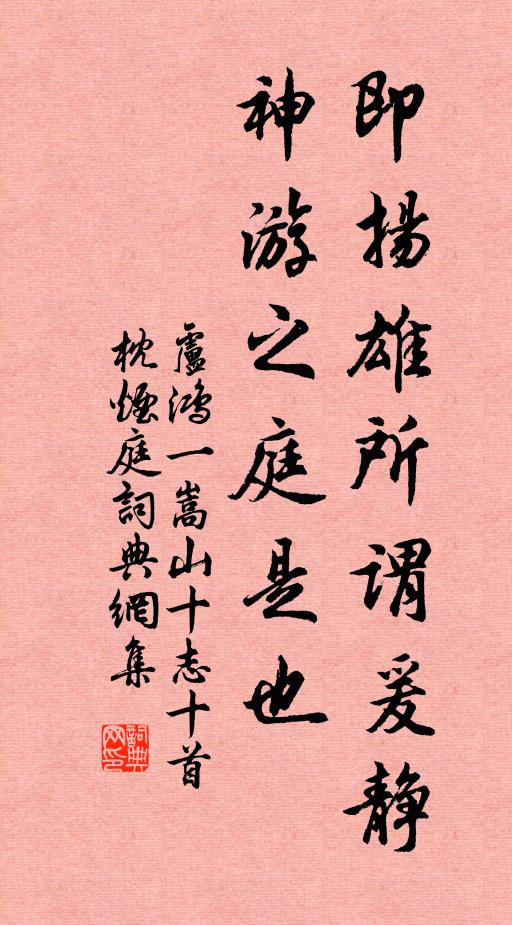 即揚雄所謂爰静
神游之庭是也
盧鴻一嵩山十志十首
枕煙庭詞典網集
詞典网印